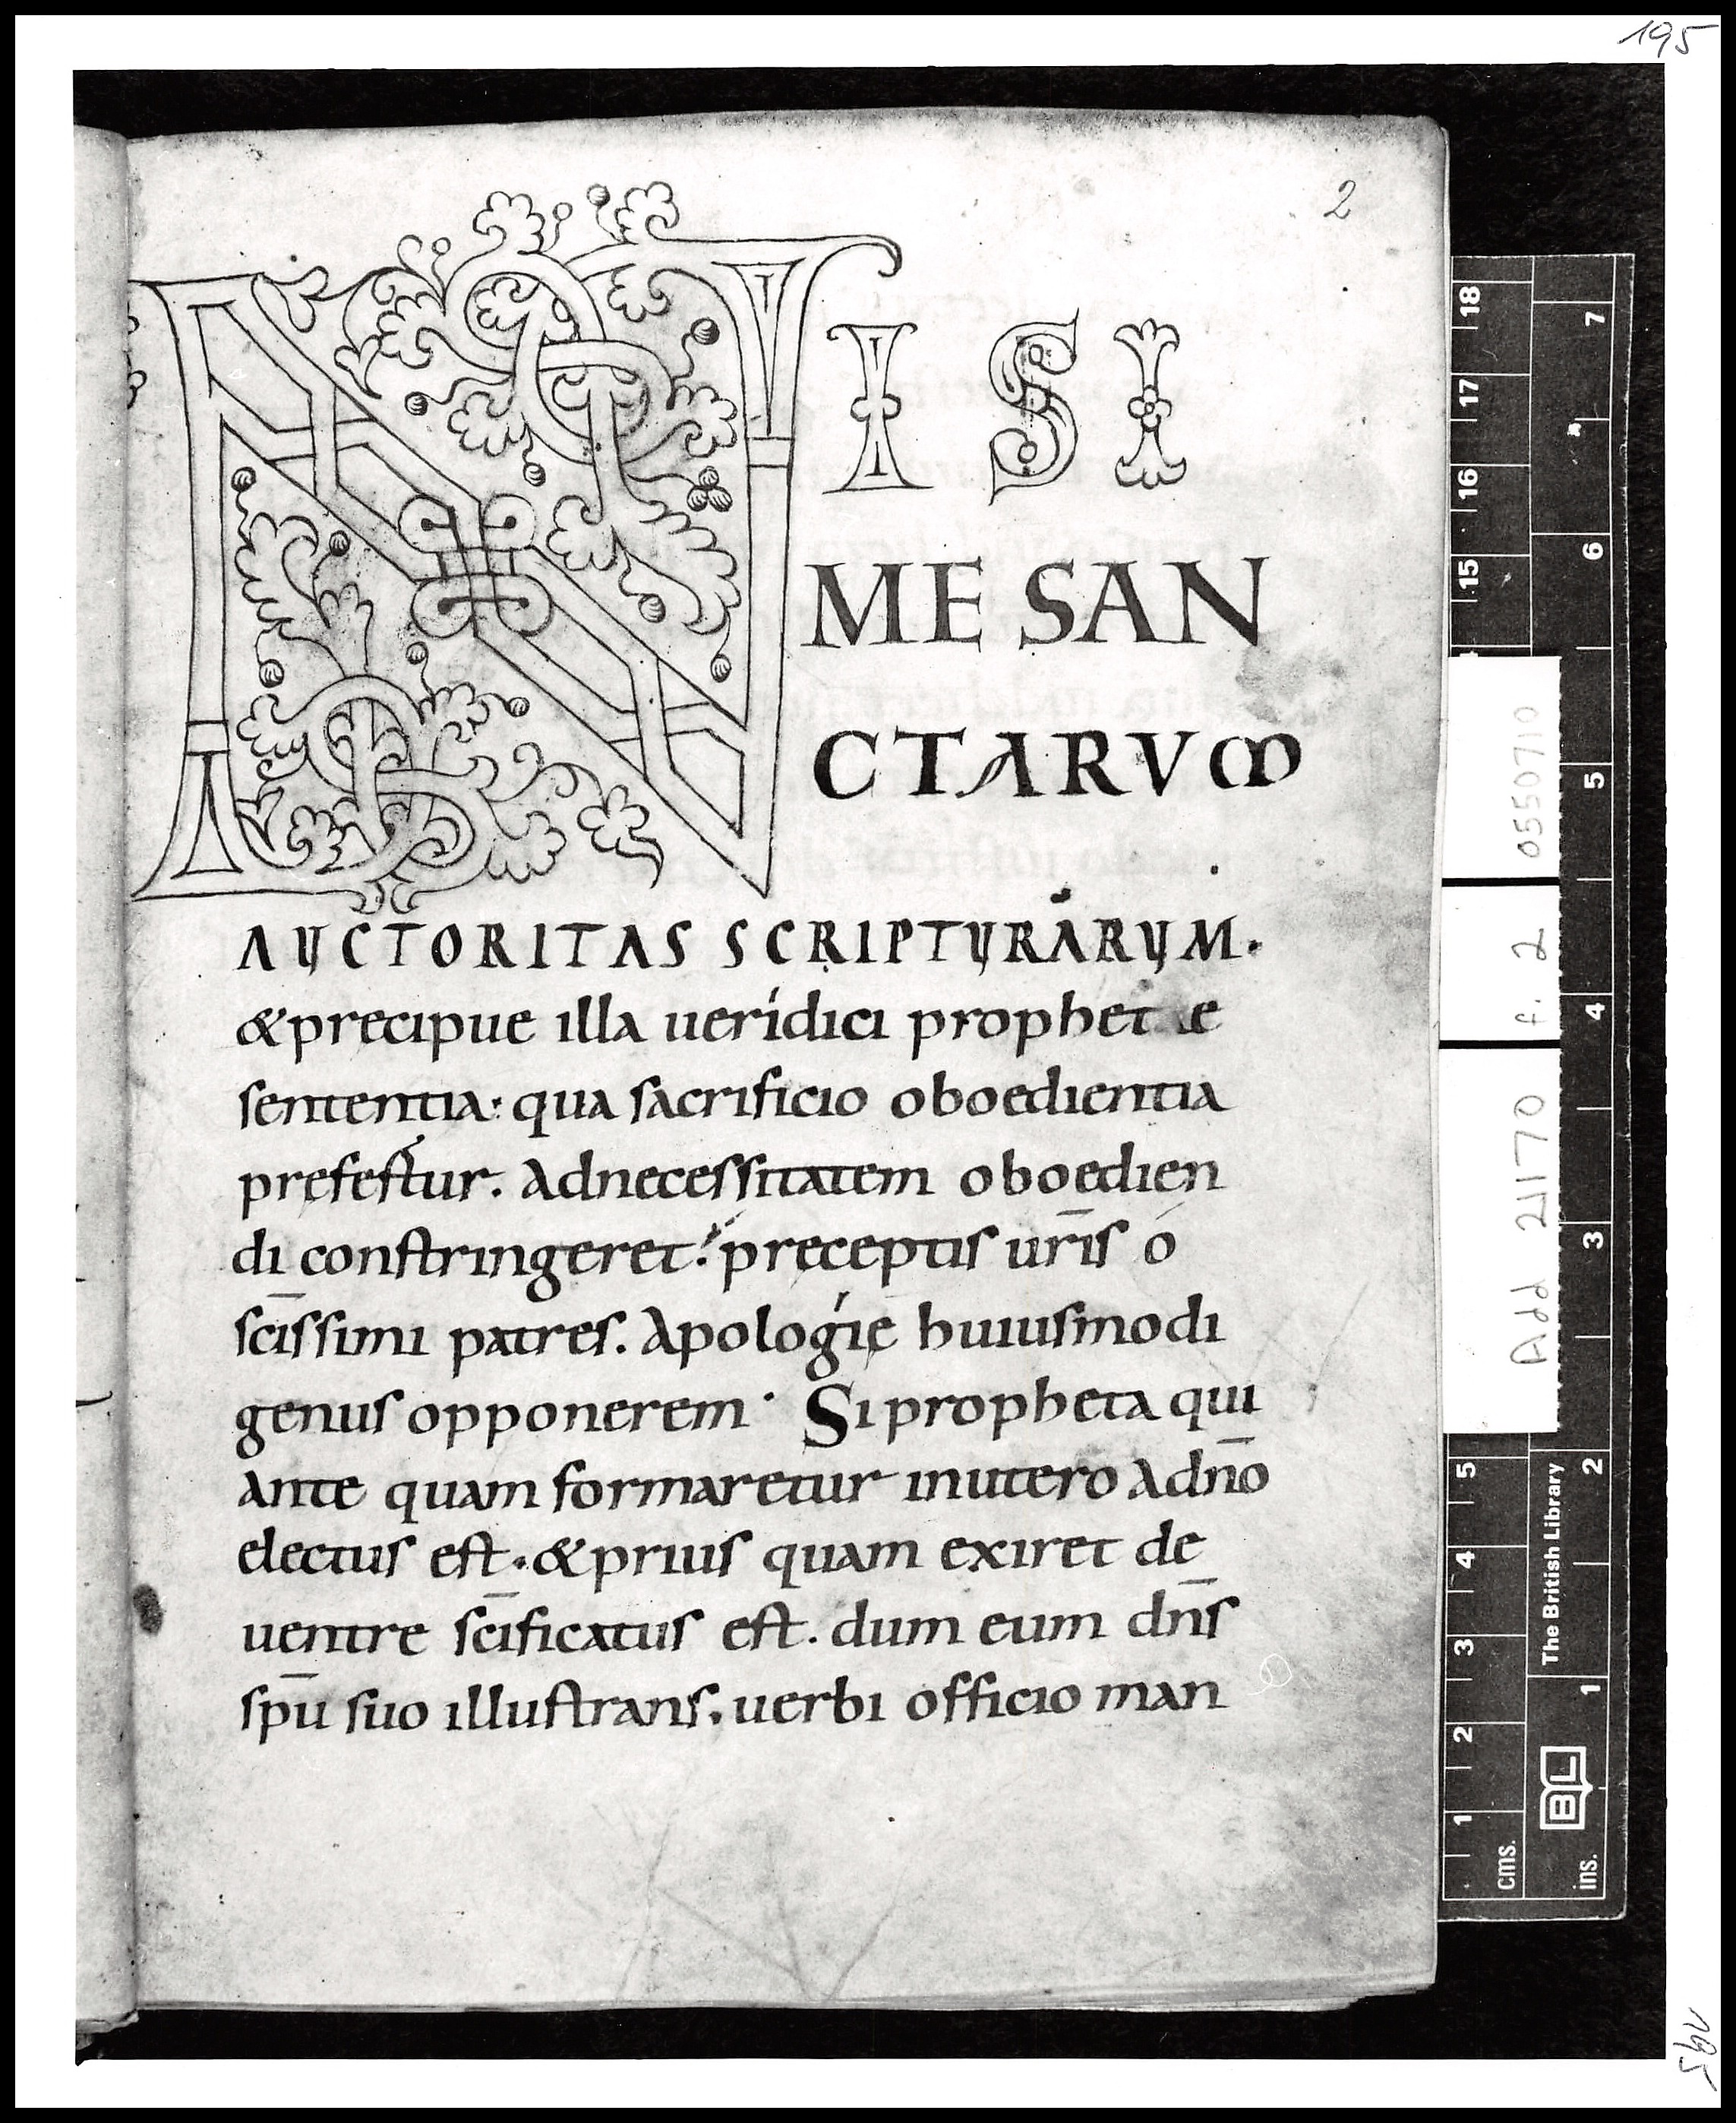 195
2
NISI
ME SAN
CTARUM
AUCTORITAS SCRIPTURARUM.
&precipue illa ueridici prophet e
sententia: qua sacrificio oboedientia
prefertur. Adnecessitatem oboedien
di constringeret: preceptis ur̄is ó
sc̄issimi patres. Apologię huiusmodi
genus opponerem· Si propheta qui
ante quam formaretur inutero adn̄o
electus est. &prius quam exiret de
uentre sc̄ificatus est. dum eum dn̄s
sp̄u suo illustrans. uerbi officio man
0550710
f. 2
Add 21170
The British Library
BL
cms. 1 2 3 4 5 15 16 17 18
ins. 1 2 3 4 5 6 7
195